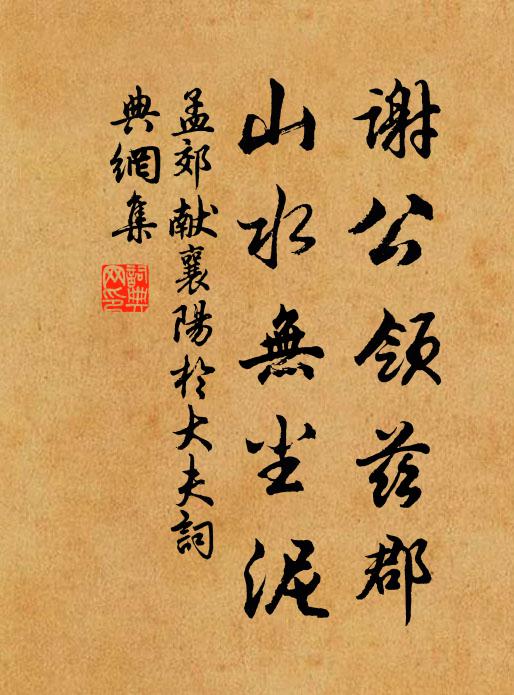 谢公领兹郡
山水無尘泥
孟郊献襄陽於大夫詞
典網集
詞典网印